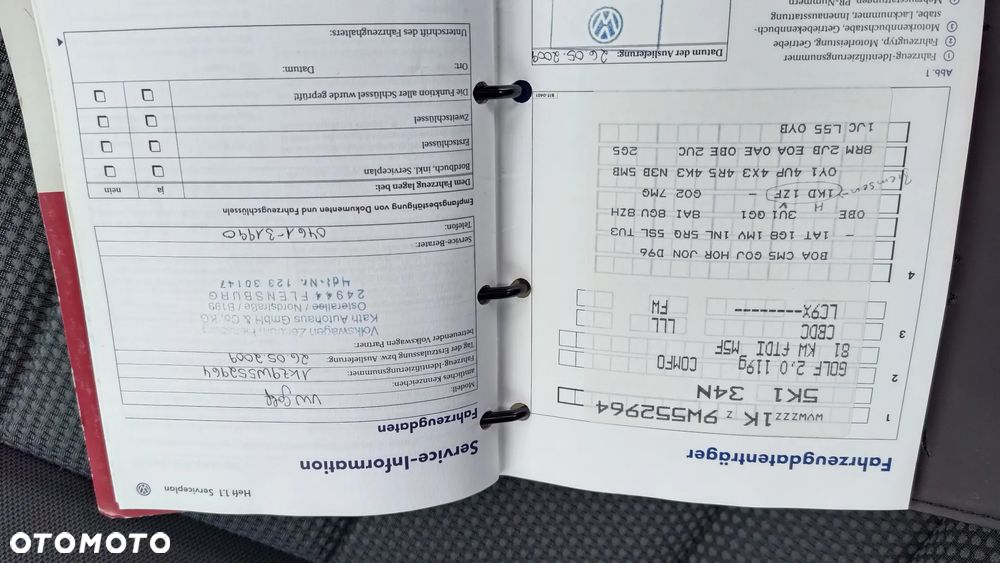 Fahrzeugdatenträger
1 WVWZZZ 1K Z 9W552964
5K1 34N
2 GOLF 2,0 119g COMFO
81 KW fTDI M5F
3 CBDC LLL
LC9X---------- FW
4
B0A CM5 G0J H0R J0N D96
- 1AT 1G8 1MV 1NL 5RQ 5SL TU3
0BE 3U1 QG1 8AI 8GU 8ZH
H V
1KD 1ZF - G02 7MG
0Y1 4UP 4X3 4R5 4K3 N3B 5MB
8RM 2JB E0A 0AE 0BE 2UC 2G5
1JC L55 0YB
Abb. 1
① Fahrzeug-Identifizierungsnummer
② Fahrzeugtyp, Motorleistung, Getriebe
③ Motorkennbuchstabe, Getriebekennbuch-
stabe, Lacknummer, Innenausstattung
Datum der Auslieferung: 26.05.2009
Heft 1.1 Serviceplan
Service-Information
Fahrzeugdaten
Modell: VW Golf
amtliches Kennzeichen:
Fahrzeug-Identifizierungsnummer: 1KZ9W552964
Tag der Erstzulassung bzw. Auslieferung: 26.05.2009
betreuender Volkswagen Partner:
Volkswagen Zentrum Flensburg
Kath Autohaus GmbH & Co. KG
Osterallee / Nordstraße / B199
24944 FLENSBURG
Tel.-Nr. 123 30147
Service-Berater:
Telefon: 0461-31990
Empfangsbestätigung von Dokumenten und Fahrzeugschlüsseln
Dem Fahrzeug lagen bei: ja nein
Bordbuch, inkl. Serviceplan
Erstschlüssel
Zweitschlüssel
Die Funktion aller Schlüssel wurde geprüft!
Ort: Datum:
Unterschrift des Fahrzeughalters:
OTOMOTO